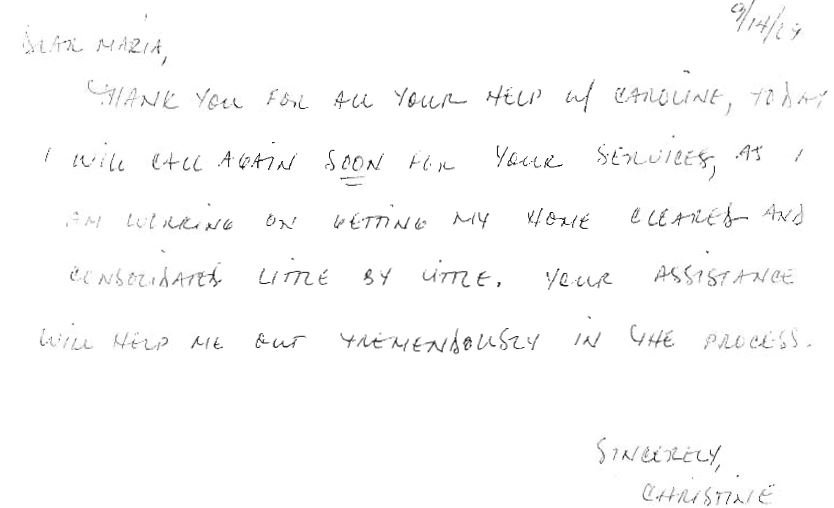 9/14/19
DEAR MARIA,
THANK YOU FOR ALL YOUR HELP W/ CAROLINE, TODAY
I WILL CALL AGAIN SOON FOR YOUR SERVICES, AS I
AM WORKING ON GETTING MY HOME CLEARED AND
CONSOLIDATED LITTLE BY LITTLE. YOUR ASSISTANCE
WILL HELP ME OUT TREMENDOUSLY IN THE PROCESS.
SINCERELY,
CHRISTINE